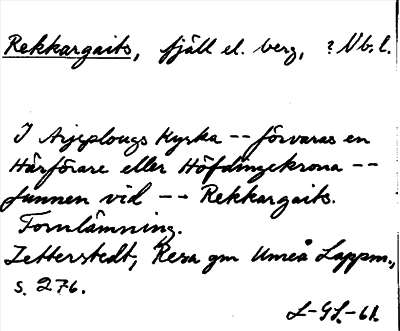 Rekkargaits, fjäll el. berg, ? Vb. l.
I Arjeplougs Kyrka -- förvaras en
Härförare eller Höfdingekrona --
funnen vid -- Rekkargaits.
Fornlämning.
Zetterstedt, Resa gm Umeå Lappm.,
s. 276.
L-GL-61.